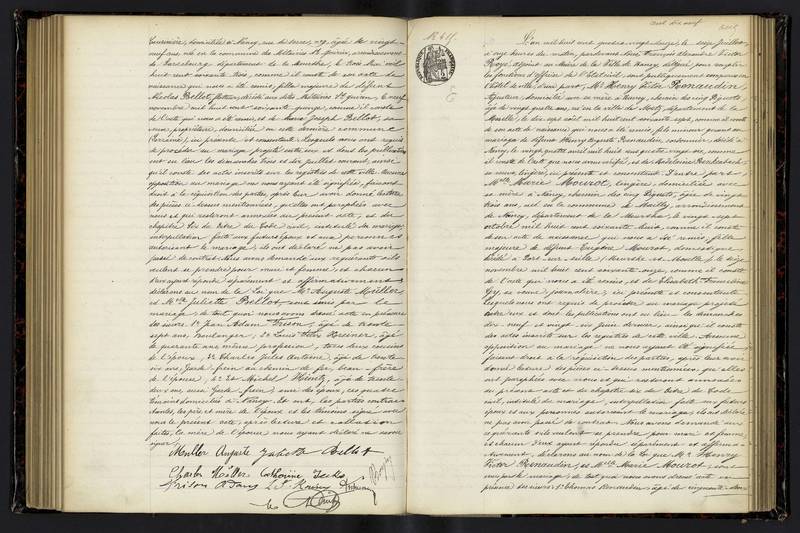 Couturière, domiciliée à Nancy, rue
neuf ans, née en la commune de
de Sarrebourg département de la Meurthe, le trois
huit cent soixante trois, comme il conste de son acte de
naissance qui nous a été remis, fille majeure de défunt
Nicolas Bellot,
novembre mil huit cent soixante quinze, comme il conste
de l'acte qui nous a été remis, et de Marie Joseph Bellot, sa
veuve, propriétaire, domiciliée en cette dernière commune
(Lorraine), ici présente et consentante. Lesquels nous ont requis
de procéder au mariage projeté entre eux et dont les publications
ont eu lieu les dimanches trois et dix juillet courant, ainsi
qu'il conste des actes inscrits sur les registres de cette ville. Aucune
opposition au mariage ne nous ayant été signifiée, faisant
droit à la réquisition des parties, après leur avoir donné lecture
des pièces ci-dessus mentionnées, qu'elles ont paraphées avec
nous et qui resteront annexées au présent acte, et du
chapitre six du titre du Code civil, intitulé du mariage,
interpellation faite aux futurs époux et aux personnes
autorisant le mariage, ils ont déclaré ne pas avoir
passé de contrat. Nous avons demandé aux requérants s'ils
veulent se prendre pour mari et femme, et chacun
d'eux ayant répondu séparément et affirmativement
déclarons au nom de la Loi que Mr Auguste Müller
et Mlle Juliette Bellot, sont unis par le
mariage; de tout quoi nous avons dressé acte en présence
des sieurs: 1° Jean Adam Frison, âgé de trente
sept ans, boulanger, 2° Louis
de quarante ans, même profession, tous deux cousins
de l'époux, 3° Charles Jules Antoine, âgé de trente
six ans, garde-frein au chemin de fer, beau-frère
de l'épouse, & 4° Michel Heintz, âgé de trente
deux ans, aussi garde frein, ami des époux, ces quatre
témoins domiciliés à Nancy. Et ont, les parties contrac-
tantes, les père et mère de l'époux et les témoins signé avec
nous le présent acte, après lecture et collation
faites, la mère de l'épouse nous ayant déclaré ne savoir
signer.
Muller Auguste Juliette Bellot
Charles Müller Catherine
Frison Adam
Heintz
1841.
L'an mil huit cent quatre-vingt-douze, le seize juillet,
à onze heures du matin, pardevant Nous François Alexandre Victor
adjoint au Maire de la Ville de Nancy délégué pour remplir
les fonctions d'officier de l'État civil, sont publiquement comparus en
l'hôtel de ville: d'une part, Mr Henry Victor Renaudin,
ajusteur, domicilié avec sa mère à Nancy, chemin
âgé de vingt quatre ans, né en la ville de Metz, département de la
Moselle, le dix sept août mil huit cent soixante sept, comme il conste
de son acte de naissance qui nous a été remis, fils mineur quant au
mariage de défunt Henry Auguste Renaudin, cordonnier, décédé à
Nancy, le vingt
il conste de l'acte que nous avons vérifié, et de Madeleine
sa veuve, lingère, ici présente et consentante. D'autre part,
Mlle Marie Mourot, lingère, domiciliée avec
sa mère à Nancy, chemin
trois ans, née en la commune de Mailly, arrondissement
de Nancy, département de la Meurthe, le vingt sept
octobre mil huit cent soixante huit, comme il conste de
son acte de naissance qui nous a été remis, fille
majeure de défunt Eugène Mourot, domestique,
décédé à Port sur Seille (Meurthe et Moselle), le seize
novembre mil huit cent soixante onze, comme il conste
de l'acte qui nous a été remis, et de Elisabeth Françoise
Gy, sa veuve, journalière, ici présente et consentante.
Lesquels nous ont requis de procéder au mariage projeté
entre eux et dont les publications ont eu lieu les dimanches
dix-neuf et vingt six juin dernier, ainsi qu'il conste
des actes inscrits sur les registres de cette ville. Aucune
opposition au mariage ne nous ayant été signifiée,
faisant droit à la réquisition des parties, après leur avoir
donné lecture des pièces ci-dessus mentionnées, que elles
ont paraphées avec nous et qui resteront annexées
au présent acte, et du chapitre six du titre du Code
civil, intitulé du mariage, interpellation faite aux futurs
époux et aux personnes autorisant le mariage, ils ont déclaré
ne pas avoir passé de contrat. Nous avons demandé aux
requérants s'ils veulent se prendre pour mari et femme,
et chacun d'eux ayant répondu séparément et affirma-
tivement, déclarons au nom de la Loi que Mr Henry
Victor Renaudin et Mlle Marie Mourot, sont
unis par le mariage; de tout quoi nous avons dressé acte en
présence des sieurs: 1° Thomas Renaudin, âgé de cinquante-deux